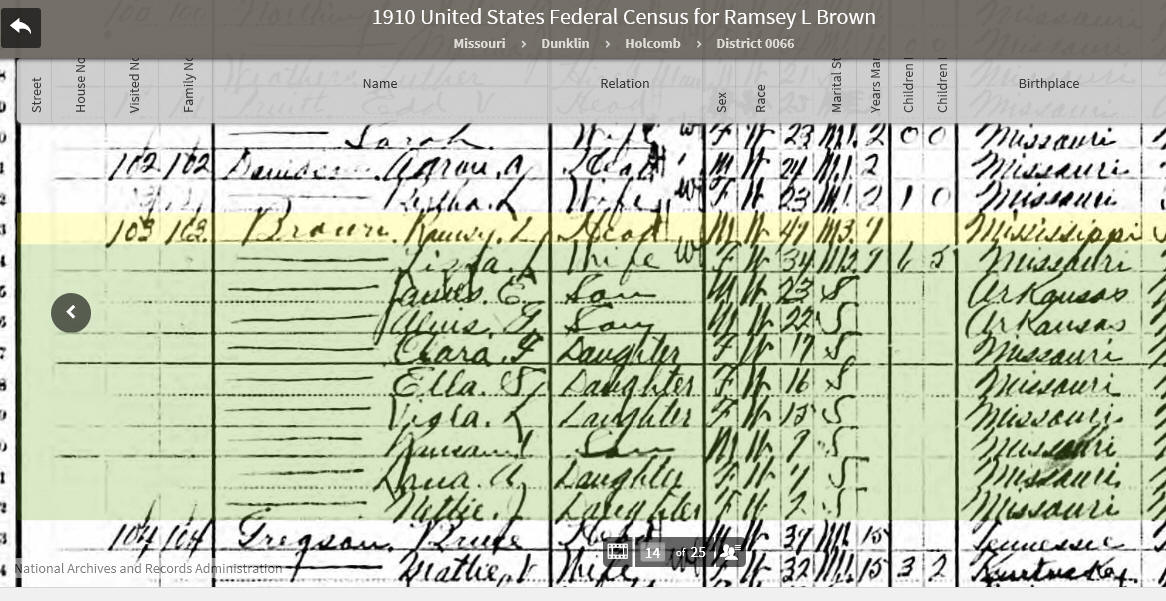 1910 United States Federal Census for Ramsey L Brown
Missouri > Dunklin > Holcomb > District 0066
Street House No Visited No Family No Name Relation Sex Race Marital St Years Mar Children Children Birthplace
Sarah Wife W F W 23 M1 2 0 0 Missouri
102 102 Aaron. A Head M W 24 M1 2 Missouri
Wife W F W 23 M1 2 1 0 Missouri
103 103 Brown. Ramsey. L Head M W 47 M3 9 Mississippi
L Wife W F W 34 M2 9 6 5 Missouri
James. E. Son M W 23 S Arkansas
Son M W 22 S Arkansas
Clara. F Daughter F W 17 S Missouri
Ella. Daughter F W 16 S Missouri
Daughter F W 15 S Missouri
Son M W S Missouri
Daughter F W S Missouri
Nettie. J Daughter F W 2 S Missouri
104 104 Gregson. Bruce Head M W 37 M1 15 Tennessee
14 of 25
National Archives and Records Administration
Mattie. V Wife W F W 32 M1 15 3 2 Kentuckey